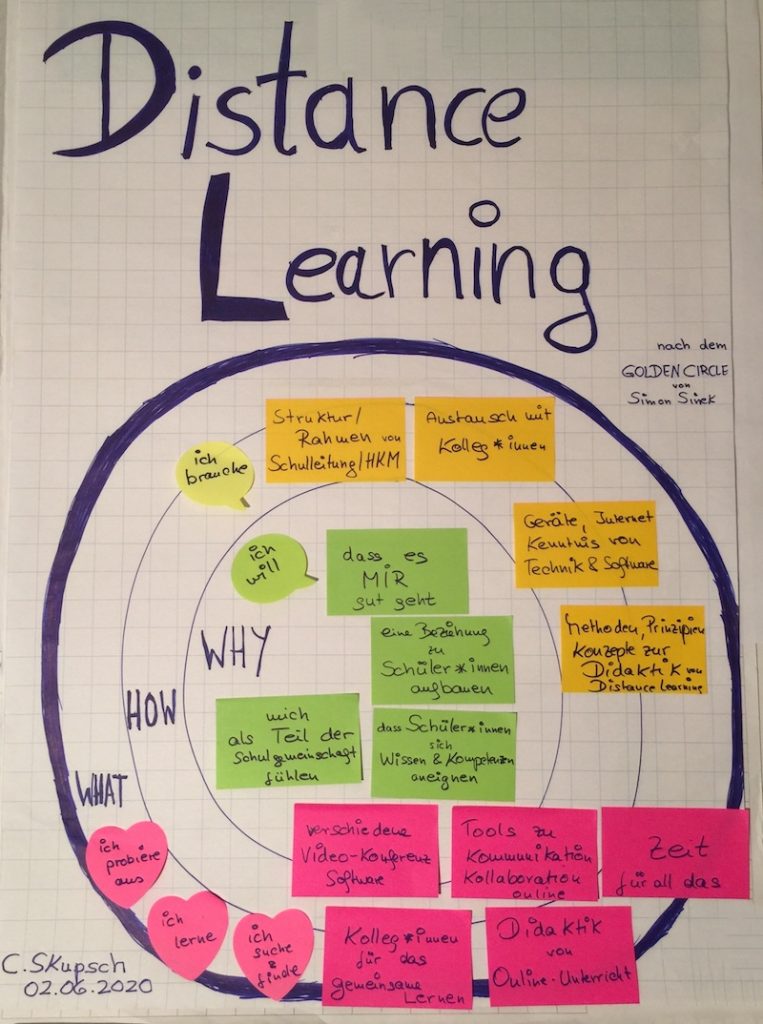 Distance
Learning
nach dem
GOLDEN CIRCLE
von
Simon Sinek
ich
brauche
Struktur/
Rahmen von
Schulleitung/HKM
Austausch mit
Kolleg*innen
Geräte, Internet
Kenntnis von
Technik & Software
Methoden, Prinzipien
Konzepte zur
Didaktik von
Distance Learning
ich
will
dass es
MIR
gut geht
eine Beziehung
zu
Schüler*innen
aufbauen
WHY
mich
als Teil der
Schulgemeinschaft
fühlen
dass Schüler*innen
sich
Wissen & Kompetenzen
aneignen
HOW
WHAT
ich
probiere
aus
ich
lerne
ich
suche
&
finde
verschiedene
Video-Konferenz
Software
Tools zu
Kommunikation
Kollaboration
online
Zeit
für all das
Kolleg*innen
für das
gemeinsame
Lernen
Didaktik
von
Online-Unterricht
C. SKupsch
02.06.2020